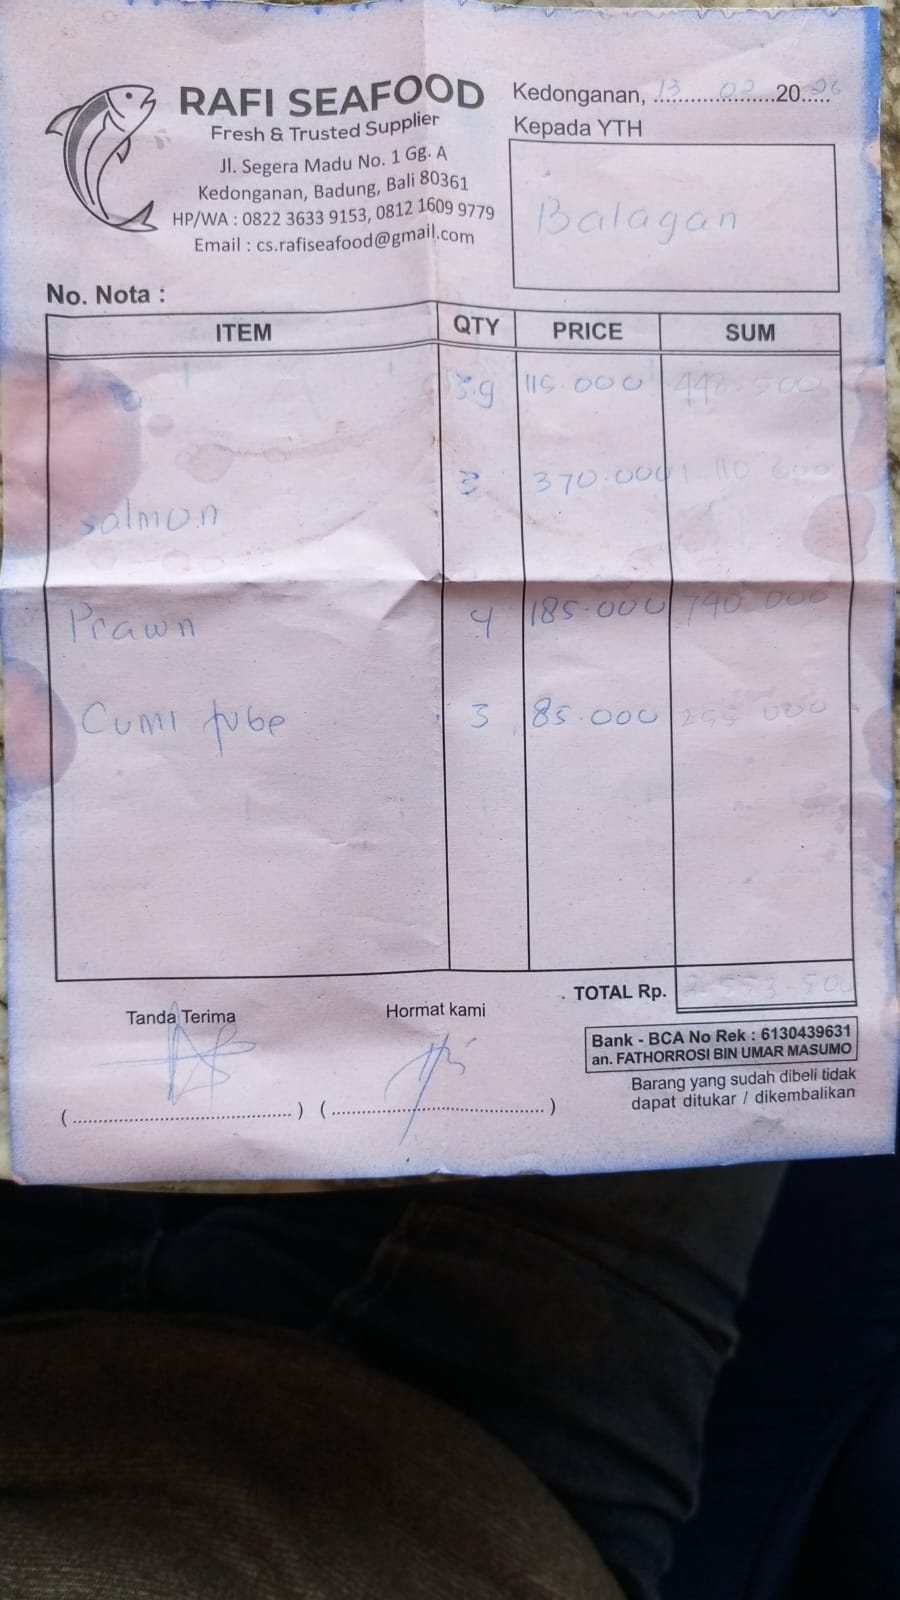 RAFI SEAFOOD
Fresh & Trusted Supplier
Jl. Segera Madu No. 1 Gg. A
Kedonganan, Badung, Bali 80361
HP/WA : 0822 3633 9153, 0812 1609 9779
Email : cs.rafiseafood@gmail.com
Kedonganan, 13 02 2026
Kepada YTH
Balagan
No. Nota :
ITEM QTY PRICE SUM
3.9 115.000 448.500
Salmon 3 370.000 1.110 000
Prawn 4 185.000 740 000
Cumi tube 3 85.000 255 000
TOTAL Rp. 2.553.500
Tanda Terima
Hormat kami
Bank - BCA No Rek : 6130439631
an. FATHORROSI BIN UMAR MASUMO
Barang yang sudah dibeli tidak
dapat ditukar / dikembalikan